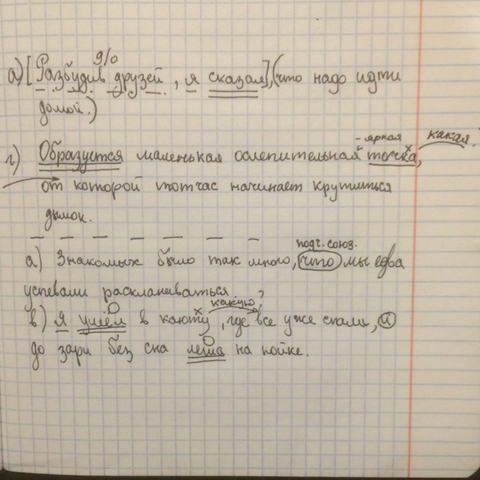 д/о
а) [Разбудив друзей, я сказал], (что надо идти
домой.)
- яркая какая?
г) Образуется маленькая ослепительная точка,
от которой тотчас начинает крутиться
дымок.
подч. союз.
а) Знакомых было так много, что мы едва
успевали раскланиваться.
какую?
в) Я ушёл в каюту, где все уже спали, и
до зари без сна лежал на койке.